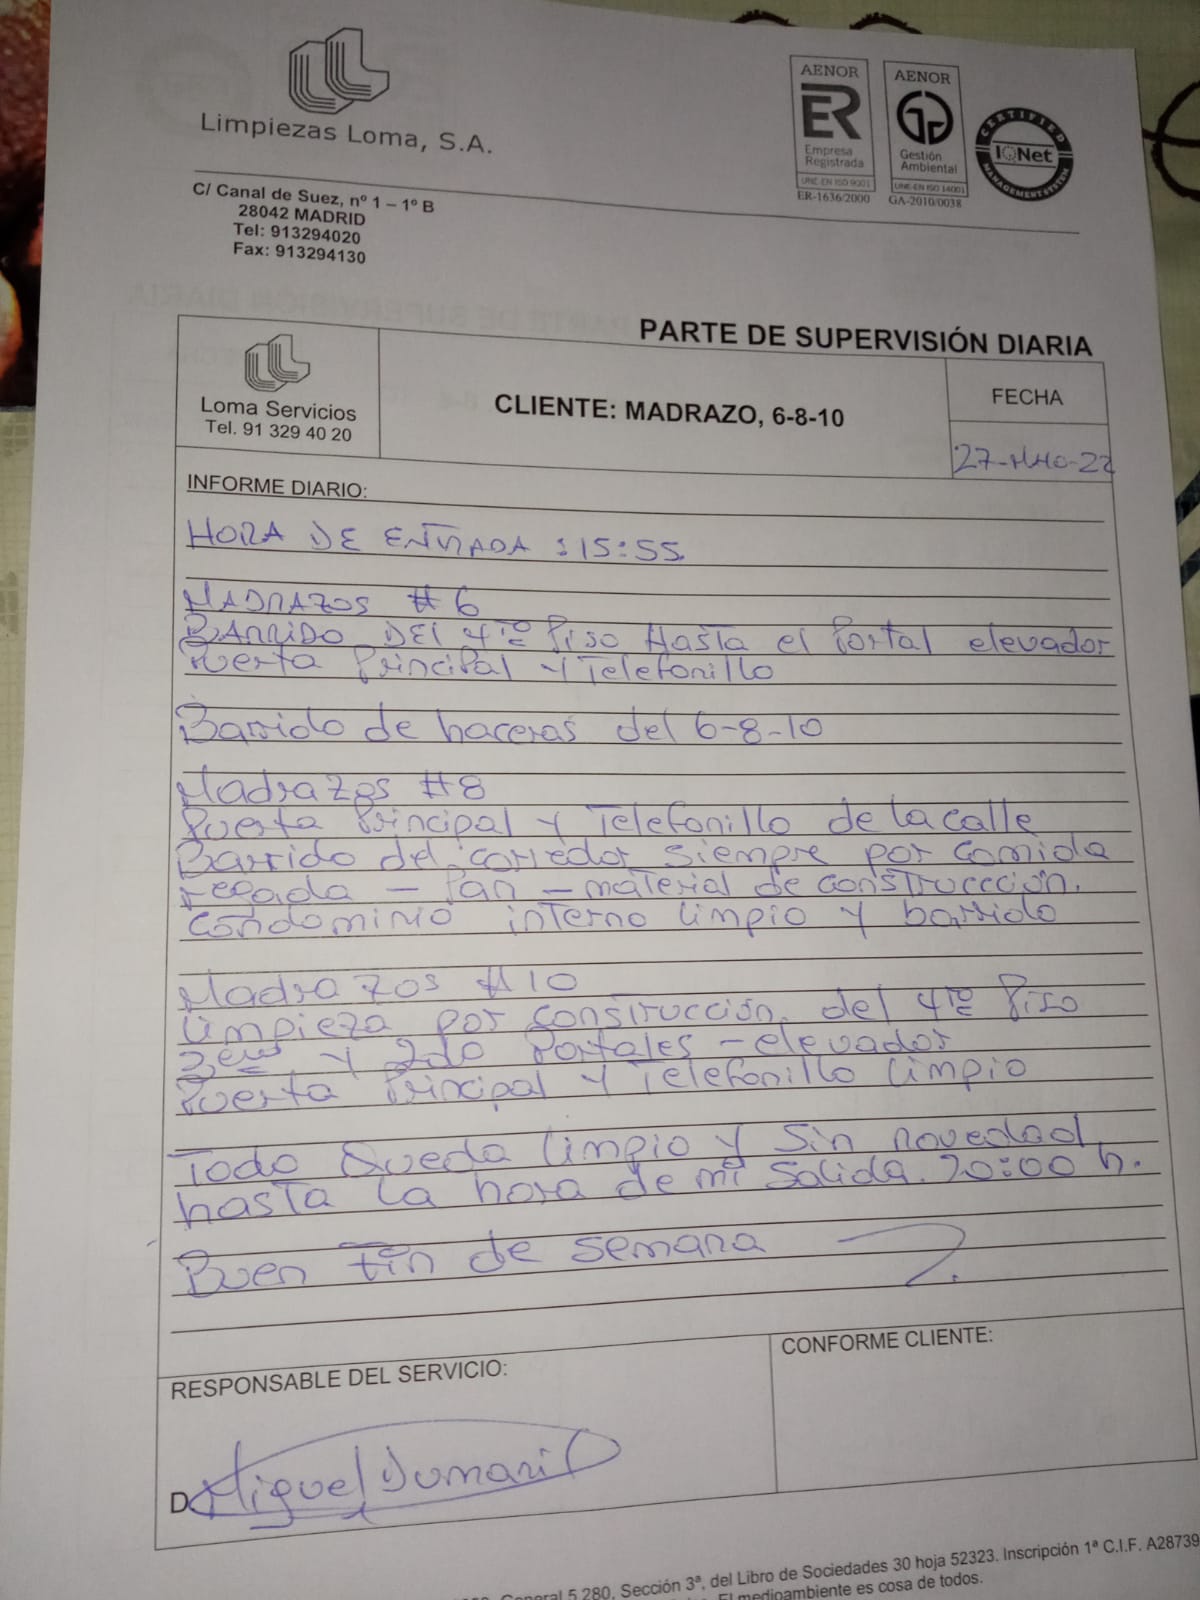 Limpiezas Loma, S.A.
C/ Canal de Suez, nº 1 – 1º B
28042 MADRID
Tel: 913294020
Fax: 913294130
AENOR
ER
Empresa
Registrada
UNE-EN ISO 9001
ER-1636/2000
AENOR
Gestión
Ambiental
UNE-EN ISO 14001
GA-2010/0038
CERTIFIED
IQNet
MANAGEMENT SYSTEM
PARTE DE SUPERVISIÓN DIARIA
Loma Servicios
Tel. 91 329 40 20
CLIENTE: MADRAZO, 6-8-10
FECHA
INFORME DIARIO:
HORA DE ENTRADA : 15:55
MADRAZOS # 6
BARRIDO DEL 4to Piso HASTA el Portal elevador
Puerta Principal y Telefonillo
Barrido de haceras del 6-8-10
Madrazos #8
Puerta Principal y Telefonillo de la calle
Barrido del corredor siempre por comida
regada – Pan – material de construcción.
Condominio interno limpio y barrido
Madrazos #10
limpieza por construcción del 4to Piso
y 2do Portales – elevador
Puerta Principal y Telefonillo limpio
Todo Queda limpio y sin novedad
hasta la hora de mi salida. 20:00 h.
Buen fin de semana
RESPONSABLE DEL SERVICIO:
CONFORME CLIENTE:
D. Miguel
General 5.280, Sección 3ª, del Libro de Sociedades 30 hoja 52323. Inscripción 1ª C.I.F. A28739
El medioambiente es cosa de todos.